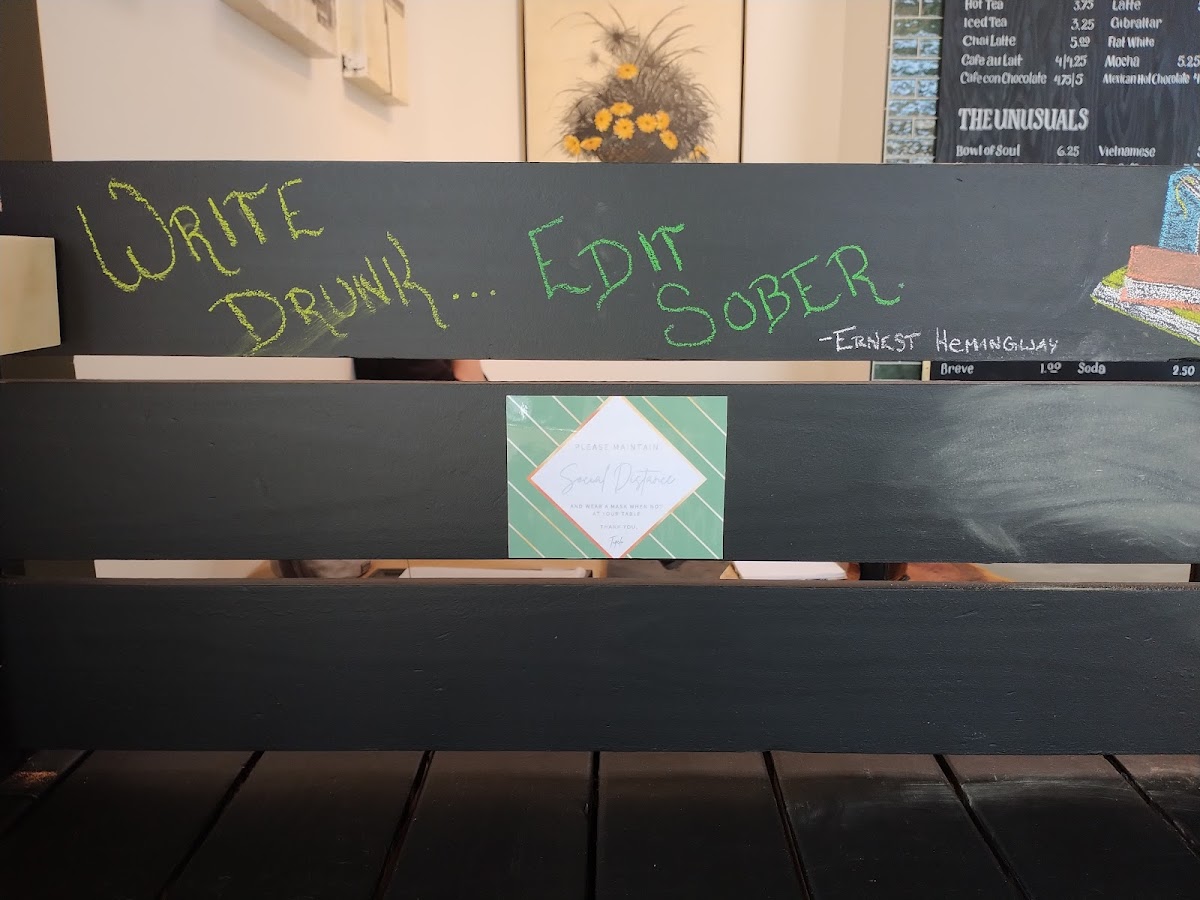 Hot Tea 3.75 Latte
Iced Tea 3.25 Gibraltar
Chai Latte 5.00 Flat White
Cafe au Lait 4/4.25 Mocha 5.25
Cafe con Chocolate 4.75/5 Mexican Hot Chocolate
THE UNUSUALS
Bowl of Soul 6.25 Vietnamese
WRITE
DRUNK... EDIT
SOBER.
-ERNEST HEMINGWAY
Breve 1.00 Soda 2.50
PLEASE MAINTAIN
Social Distance
AND WEAR A MASK WHEN NOT
AT YOUR TABLE
THANK YOU,